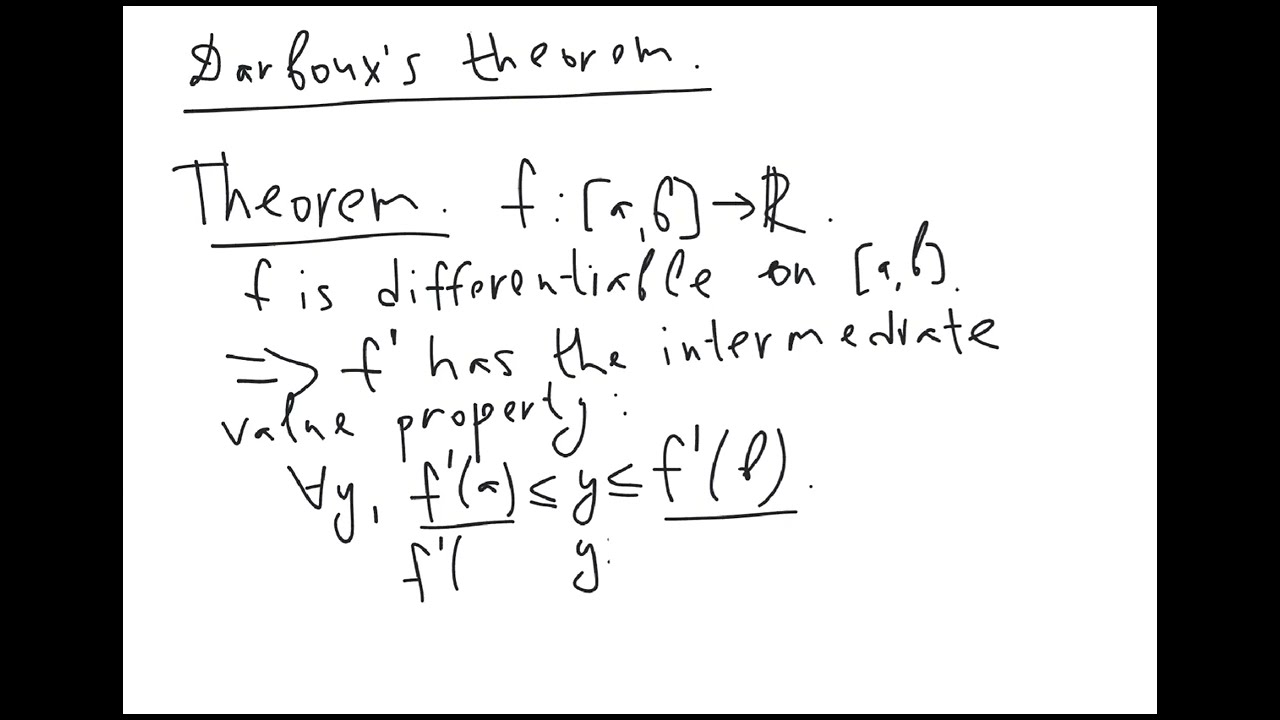 Darboux's theorem.
Theorem. f : [a, b] → ℝ.
f is differentiable on [a, b].
⇒ f' has the intermediate
value property:
∀y, f'(a) ≤ y ≤ f'(b).
f'( y.